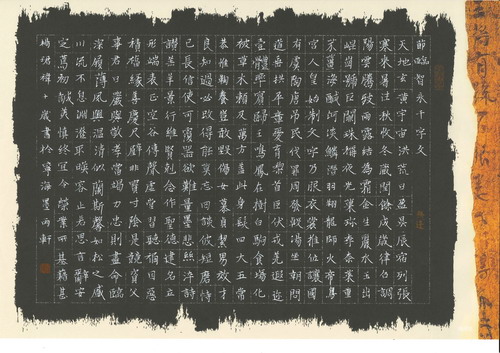 節臨智永千字文
天地玄黃宇宙洪荒日盈昃辰宿列張
寒來暑往秋收冬藏閏餘成歲律呂調
陽雲騰致雨露結為霜金生麗水玉出
崑崗劍號巨闕珠稱夜光菓珍李柰菜重
芥薑海醎河淡鱗潛羽翔龍師火帝鳥
官人皇始制文字乃服衣裳推位讓國
有虞陶唐弔民伐罪周發殷湯坐朝問
道垂拱平章愛育黎首臣伏戎羌遐邇
壹體率賓歸王鳴鳳在樹白駒食場化
被草木賴及萬方蓋此身髮四大五常
恭惟鞠養豈敢毀傷女慕貞絜男效才
良知過必改得能莫忘罔談彼短靡恃
己長信使可覆器欲難量墨悲絲淬詩
讚羔羊景行維賢剋念作聖德建名立
形端表正空谷傳聲虛堂習聽禍因惡
積福緣善慶尺璧非寶寸陰是競資父
事君曰嚴與敬孝當竭力忠則盡命臨
深履薄夙興溫凊似蘭斯馨如松之盛
川流不息淵澄取暎容止若思言辭安
定篤初誠美慎終宜令榮業所基籍甚
十歲書於寧海墨雨軒